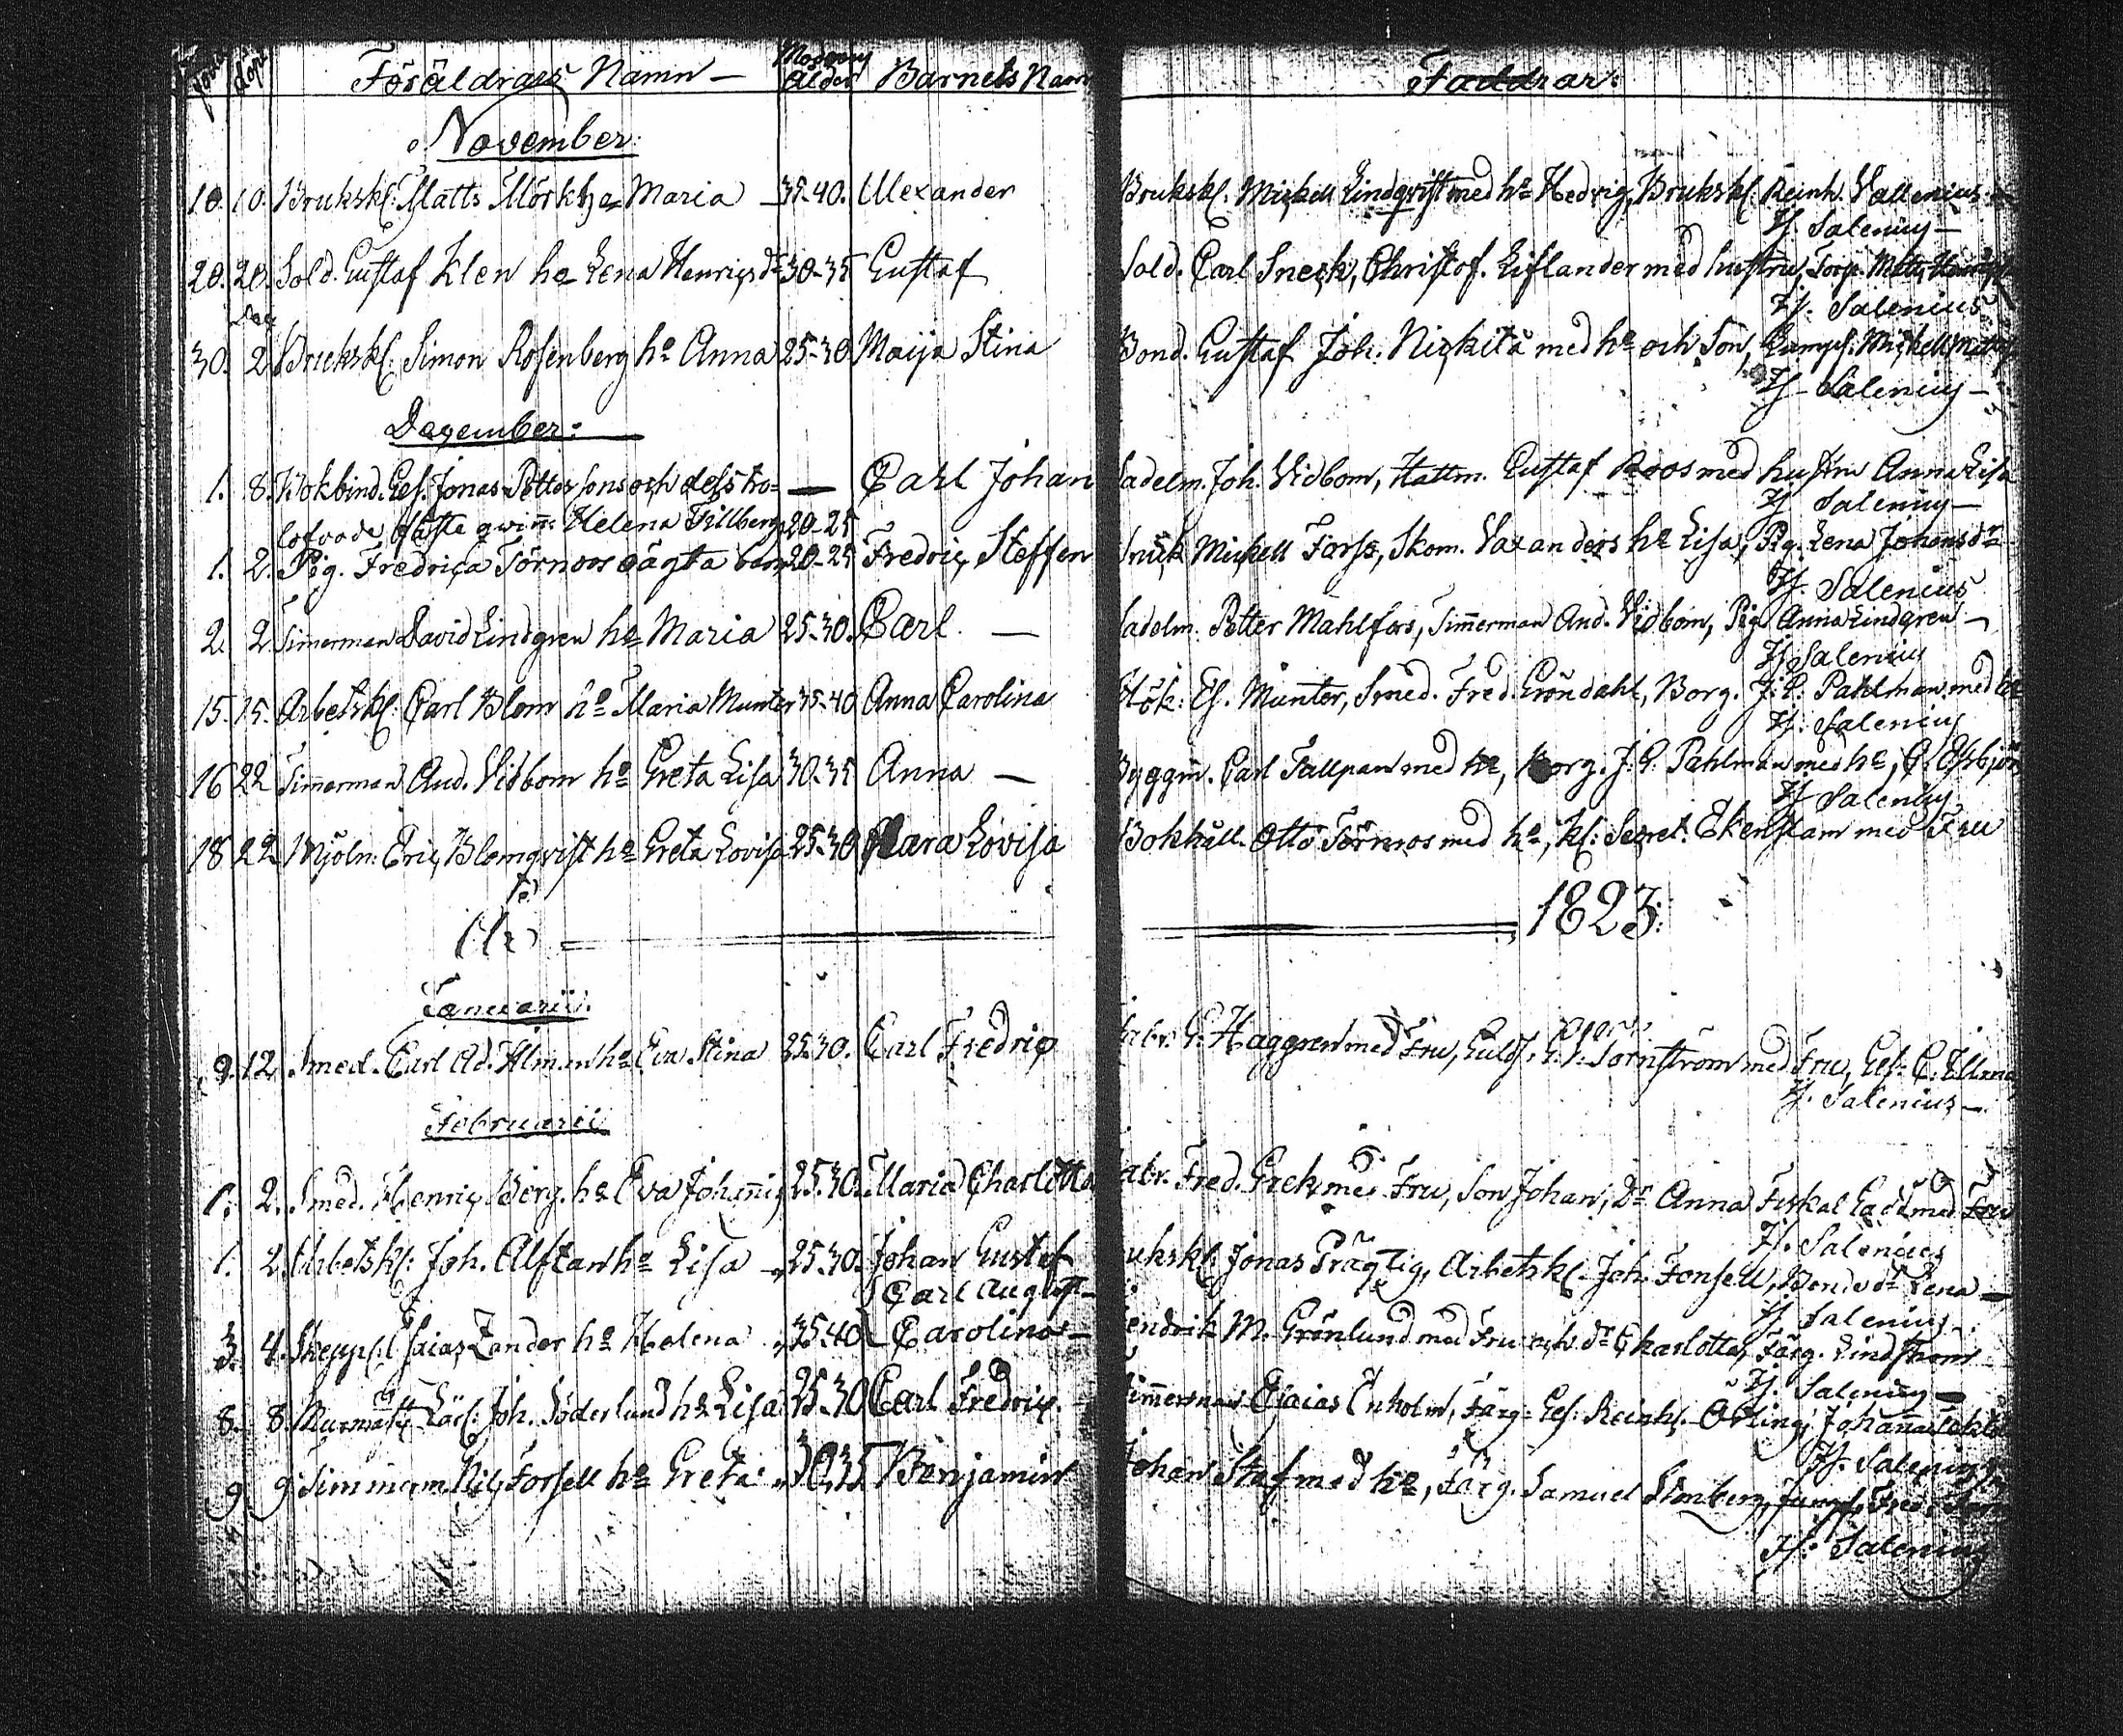 Födde Döpt Föräldrars Namn — Modrens Ålder Barnets Namn Faddrar:
November:
10. 10. Bruksk: Matts Mörk ha Maria — 35-40. Alexander Bruksk: Mickell Lindqvist med ha Hedvig, Bruksk: Reinh. Vallenius —
H. Salenius —
20. 20. Sold. Gustaf Klen ha Lena Henricsdr 30-35 Gustaf Sold. Carl Sneck, Christof. Liflander med hustru, Torp. Matts
H. Salenius
Dec
30. 2. Bruksk: Simon Rosenberg ha Anna 25-30 Maija Stina Bond. Gustaf Joh. Nickitä med ha och Son, Mickell
H. Salenius —
December:
1. 8. Bokbind. Ges. Jonas Petterson och dess tro= — Carl Johan Sadelm. Joh. Vidbom, Hattm. Gustaf Roos med hustru Anna Lisa
lofvade fäste qvin: Helena Tillberg 20-25 H. Salenius —
1. 2. Pig. Fredrica Törnroos oägta barn 20-25 Fredric Steffen Snick Mickell Forss, Skom. Vaxanders ha Lisa, Pig. Lena Johansdr
H. Salenius
2. 2. Timmerman David Lindgren ha Maria 25-30. Carl — Sadelm. Petter Mahlfors, Timmerman And. Vidbom, Pig. Anna Lindgren —
H. Salenius
15. 15. Arbetsk: Carl Blom ha Maria Munter 35-40 Anna Carolina Hök: Es. Munter, Smed. Fred. Gröndahl, Borg. J. G. Pahlman med
H. Salenius
16 22 Timmerman And. Vidbom ha Greta Lisa 30-35 Anna — Byggm. Carl Tallpan med ha, Borg. J. G. Pahlman med ha,
H. Salenius
18 22 Mjöln: Eric Blomqvist ha Greta Lovisa 25-30 Clara Lovisa Bokhåll. Otto Törnroos med ha, Kl: Secret. Ekenstam med Fru
År 1823:
Januarii:
9. 12. Smed. Carl Ad. Alman ha Eva Stina 25-30. Carl Fredric Fabr. G. Haggren med Fru, Guldf. Törnström med Fru, Ges. C.
H. Salenius —
Februarii
1. 2. Smed. Henric Berg. ha Eva Johannis 25-30. Maria Charlotta Fabr. Fred. Grek med Fru, Son Johan, Dr Anna Fiskal med Fru
H. Salenius
1. 2. Arbetsk: Joh. Alftan ha Lisa — 25-30. Johan Gustaf Bruksk: Jonas Präglig, Arbetsk. Joh. Forsell, Bondedr Lena —
H. Salenius
3. 4. Skepps: Esaias Zander ha Helena 35-40 { Carl August — Carolina — Hendrik M. Grönlund med Fru och dr Charlotta, Färg. Lindström
H. Salenius —
8. 8. Murmäst. Lärl: Joh. Söderlund ha Lisa 25-30 Carl Fredric. Timmerman Esaias Enholm, Färg. Ges. Reinh. Öhling, Johanna
H. Salenius
9. 9. Timmerm. Nils Forsell ha Greta 30-35 Benjamin Johan Staf med ha, Färg. Samuel Stenberg, Jungf. Fred.
H. Salenius